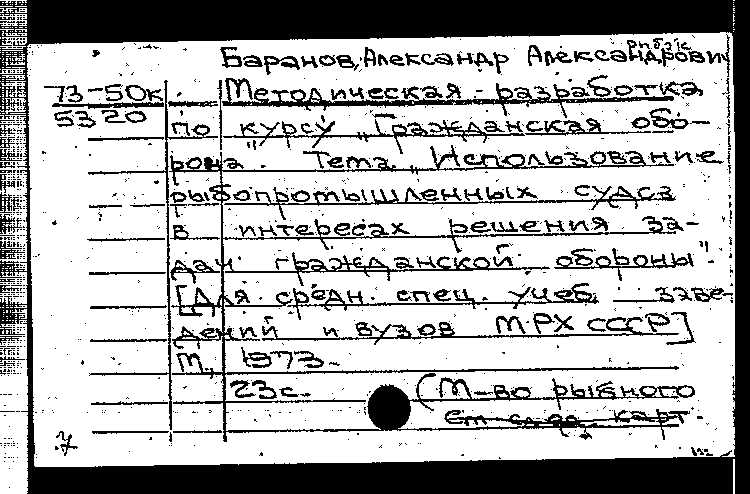 Баранов, Александр Александрович
73-50к Методическая разработка
5320 по курсу „Гражданская обо-
рона". Тема „Использование
рыбопромышленных судов
в интересах решения за-
дач гражданской обороны".
[Для средн. спец. учеб. заве-
дений и вузов МРХ СССР]
М., 1973.
23 с. (М-во рыбного
См. след. карт.